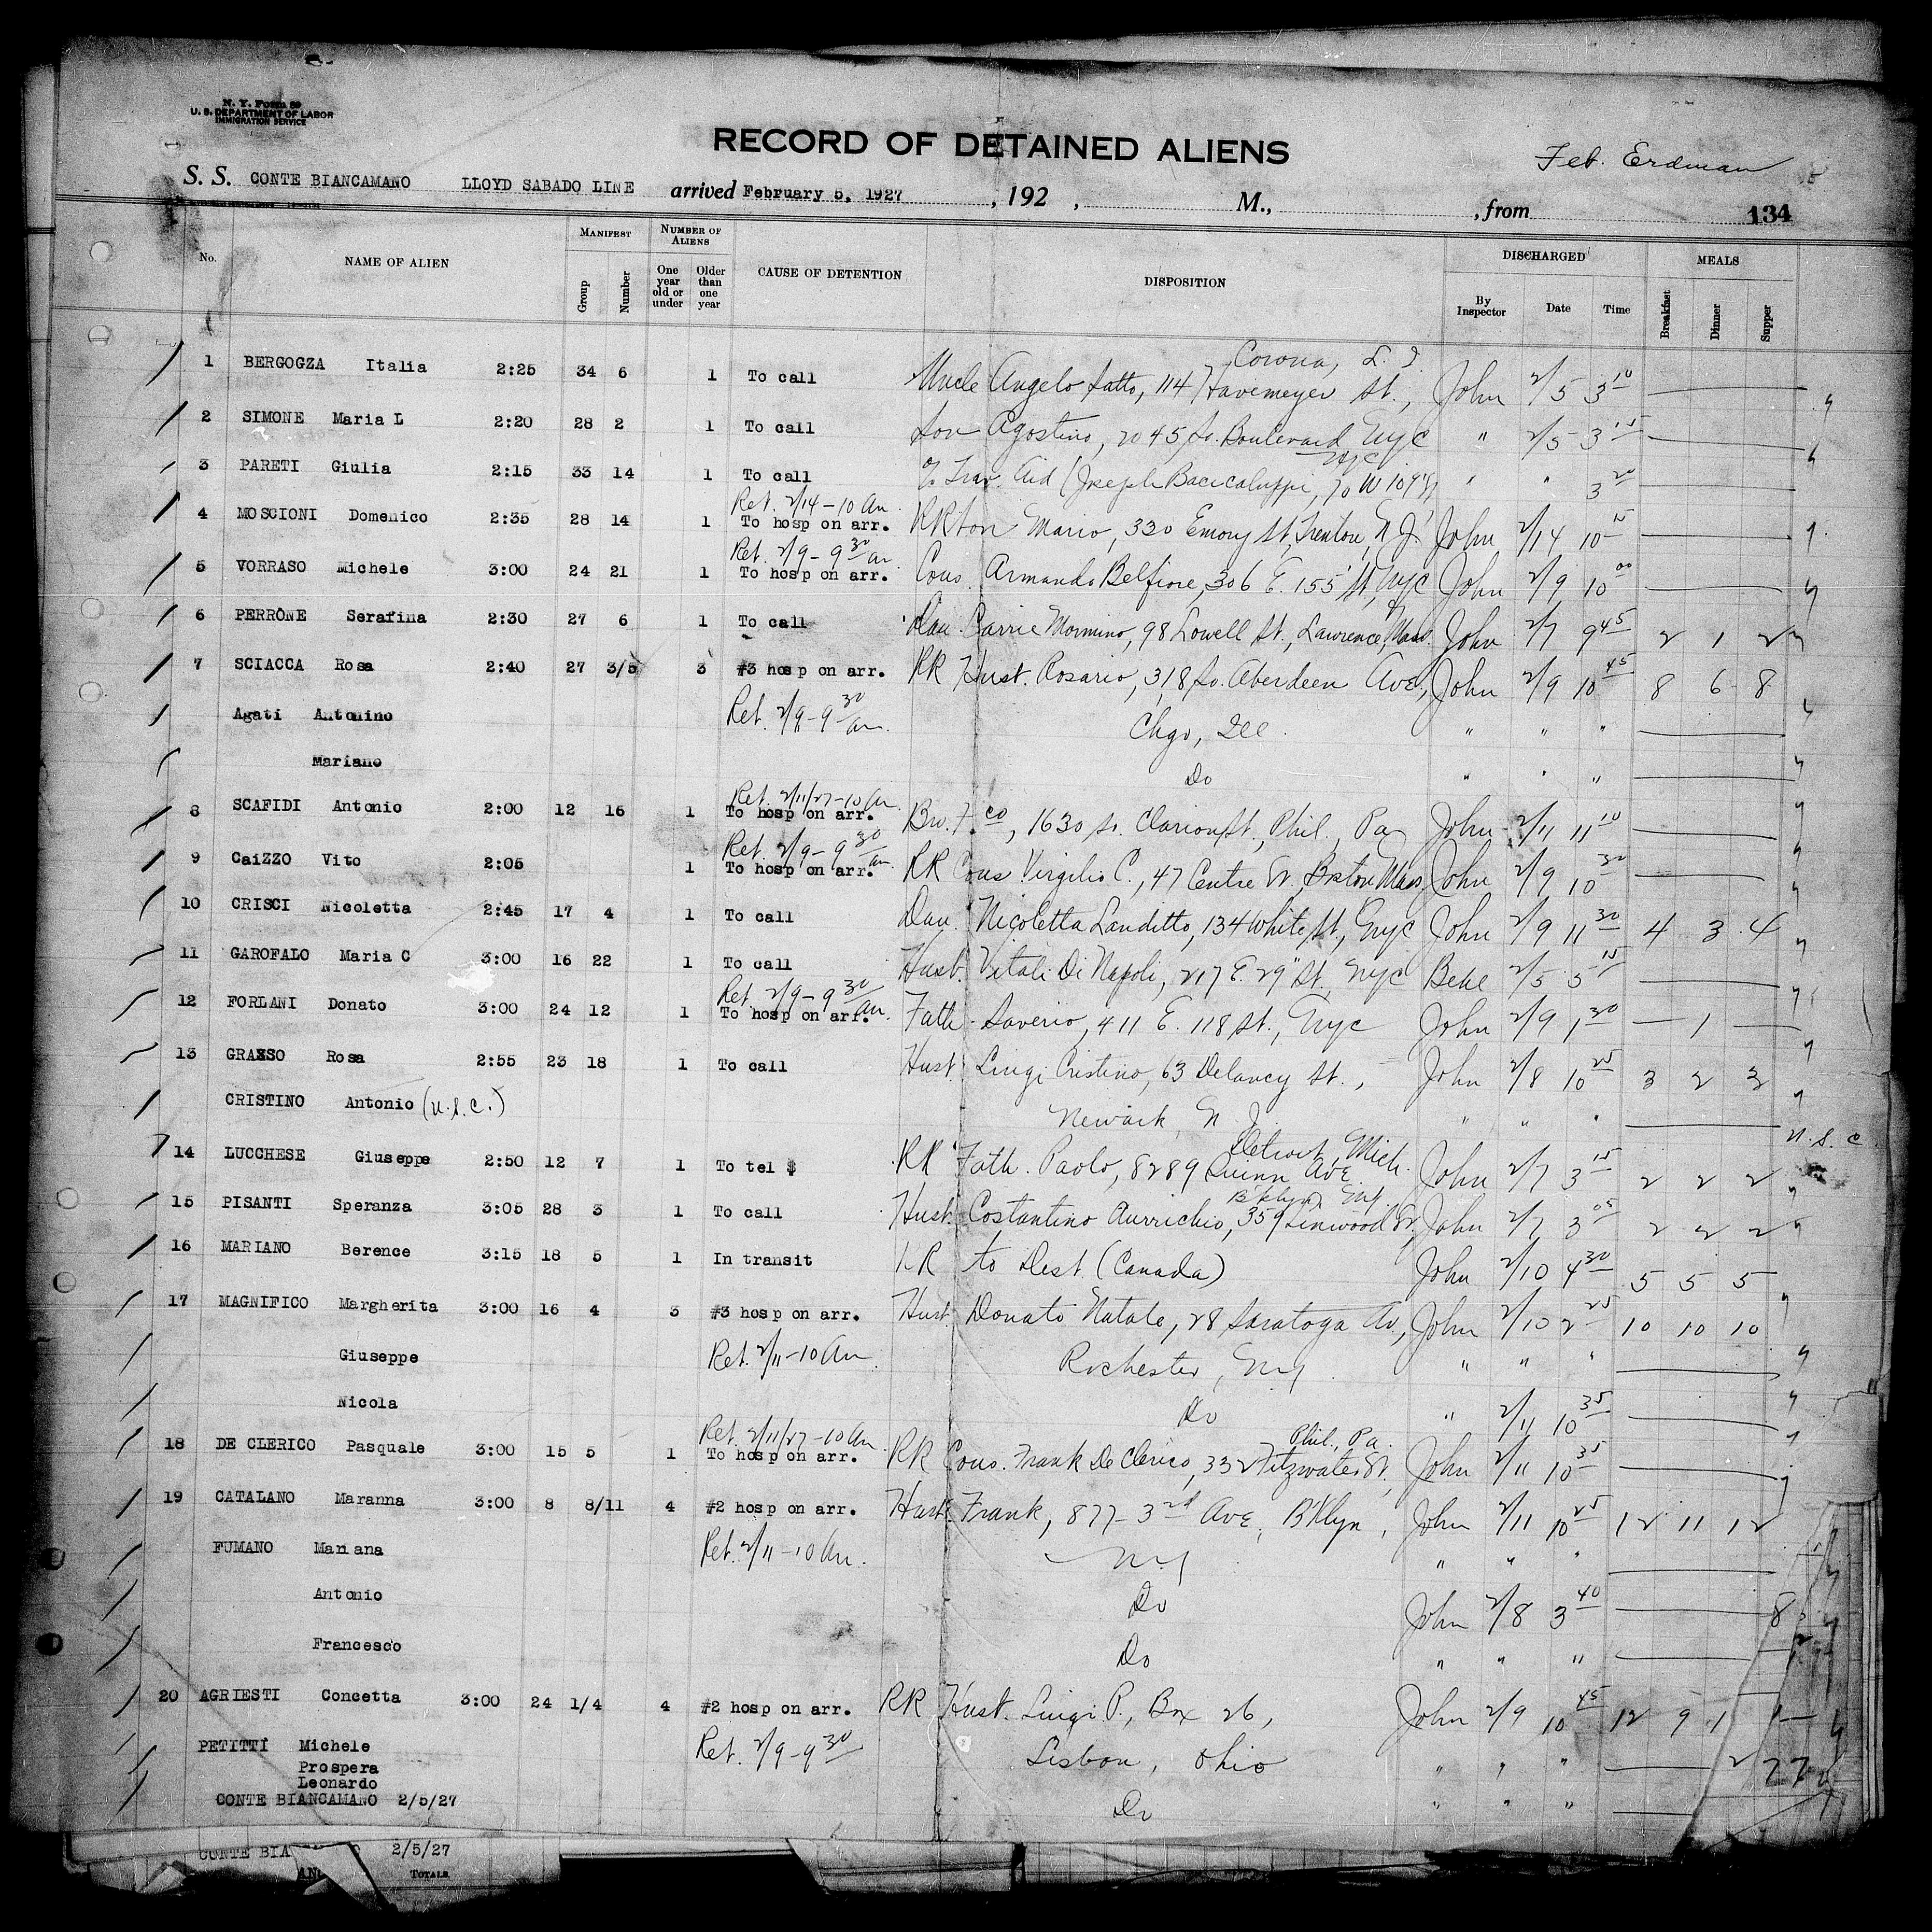 N. Y. Form 89
U. S. DEPARTMENT OF LABOR
IMMIGRATION SERVICE
RECORD OF DETAINED ALIENS
Feb. Erdman
S. S. CONTE BIANCAMANO LLOYD SABADO LINE arrived February 5, 1927, 192 , M., , from 134
No. NAME OF ALIEN MANIFEST Group Number NUMBER OF ALIENS One year old or under Older than one year CAUSE OF DETENTION DISPOSITION DISCHARGED By Inspector Date Time MEALS Breakfast Dinner Supper
Corona, L. I.
1 BERGOGZA Italia 2:25 34 6 1 To call Uncle Angelo Satto, 114 Havemeyer St., John 2/5 3 10
2 SIMONE Maria L 2:20 28 2 1 To call Son Agostino, 2045 So. Boulevard NYC " 2/5 3 15
NYC
3 PARETI Giulia 2:15 33 14 1 To call c/o Trav. Aid (Joseph Bacicaluppi, 70 W 109 St " " 3 20
Ret. 2/14-10 An.
4 MOSCIONI Domenico 2:35 28 14 1 To hosp on arr. RR Son Mario, 330 Emory St, Trenton, N.J. John 2/14 10 15
Ret. 2/9-9 30 an.
5 VORRASO Michele 3:00 24 21 1 To hosp on arr. Cous. Armando Belfiore, 306 E. 155 St, NYC John 2/9 10 00
6 PERRONE Serafina 2:30 27 6 1 To call Dau. Carrie Mormino, 98 Lowell St., Lawrence, Mass. John 2/7 9 45 2 1 2
7 SCIACCA Rosa 2:40 27 3/5 3 #3 hosp on arr. RR Hust. Rosario, 318 So. Aberdeen Ave, John 2/9 10 45 8 6 8
Agati Antonino Ret. 2/9-9 30 an. Chgo, Ill " " "
Mariano Do " " "
Ret. 2/11/27-10 An.
8 SCAFIDI Antonio 2:00 12 16 1 To hosp on arr. Bro. Fco, 1630 So. Clarion St, Phil., Pa John 2/11 11 10
Ret. 2/9-9 30 an.
9 CaiZZO Vito 2:05 1 To hosp on arr. RR Cous Virgilio C., 47 Centre St, Boston Mass John 2/9 10 30
10 CRISCI Nicoletta 2:45 17 4 1 To call Dau. Nicoletta Landitto, 134 White St., NYC John 2/9 11 30 4 3 4
11 GAROFALO Maria C 3:00 16 22 1 To call Husb. Vitali Di Napoli, 217 E. 29" St. NYC Behe 2/5 5 15
Ret. 2/9-9 30 an.
12 FORLANI Donato 3:00 24 12 1 To hosp on arr. Fath. Saverio, 411 E. 118 St., NYC John 2/9 1 30 — 1 —
13 GRASSO Rosa 2:55 23 18 1 To call Hust. Luigi Cristino, 63 Delancy St., John 2/8 10 25 3 2 3
CRISTINO Antonio (U.S.C.) Newark, N. J. " " " U.S.C.
Detroit, Mich.
14 LUCCHESE Giuseppe 2:50 12 7 1 To tel $ RR Fath. Paolo, 8289 Quinn Ave. John 2/7 3 15 2 2 2
B'klyn, NY.
15 PISANTI Speranza 3:05 28 3 1 To call Hust. Costantino Aurrichio, 359 Linwood St, John 2/7 3 05 2 2 2
16 MARIANO Berence 3:15 18 5 1 In transit RR to Dest (Canada) John 2/10 4 30 5 5 5
17 MAGNIFICO Margherita 3:00 16 4 3 #3 hosp on arr. Hust. Donato Natale, 28 Saratoga Av, John 2/10 2 25 10 10 10
Giuseppe Ret. 2/11-10 An. Rochester, NY " " "
Nicola Do " 2/11 10 35
Ret. 2/11/27-10 An. Phil., Pa.
18 DE CLERICO Pasquale 3:00 15 5 1 To hosp on arr. RR Cous. Frank De Clerico, 332 Fitzwater St. John 2/11 10 35
19 CATALANO Maranna 3:00 8 8/11 4 #2 hosp on arr. Hust. Frank, 877-3rd Ave, B'klyn, John 2/11 10 25 12 11 12
FUMANO Mariana Ret. 2/11-10 An. NY " " "
Antonio Do John 2/8 3 40 8
Francesco Do " " "
20 AGRIESTI Concetta 3:00 24 1/4 4 #2 hosp on arr. RR Hust. Luigi P., Box 26, John 2/9 10 45 12 9 1
PETITTI Michele Ret. 2/9-9 30 Lisbon, Ohio " " "
Prospera
Leonardo
CONTE BIANCAMANO 2/5/27 Do " " "
CONTE BIA 2/5/27
TOTALS